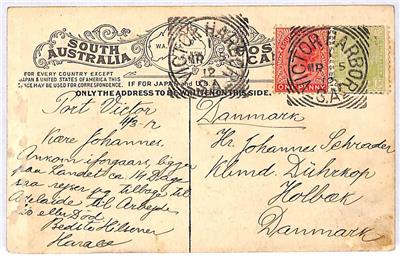 SOUTH AUSTRALIA
W.A.
POS
CA
FOR EVERY COUNTRY EXCEPT
JAPAN & UNITED STATES OF AMERICA THIS
SPACE MAY BE USED FOR CORRESPONDENCE.
IF FOR JAPAN
ONLY THE ADDRESS TO BE WRITTEN ON THIS SIDE.
VICTOR HARBOR
MR
12
S.A.
VICTOR HARBOR
MR 5
12
S.A.
ONE PENNY
Port Victor
4/3-12
Kære Johannes.
Ankom iforgaars, ligger
paa Landet ca 14 Dage
saa rejser jeg tilbage til
Adelaide til Arbejde
eller Död
Bedste Hilsener
Danmark
Hr. Johannes Schrader
Kbmd. Dührkop
Holbæk
Danmark